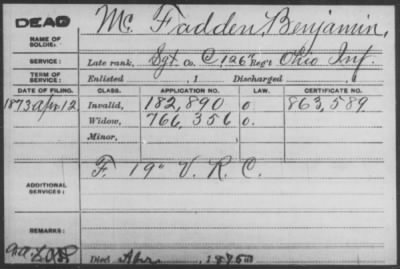 DEAD
Mc Fadden, Benjamin,
NAME OF SOLDIER:
SERVICE: Late rank, Sgt Co. C, 126" Reg't Ohio Inf.
TERM OF SERVICE: Enlisted , 1 Discharged , 1
DATE OF FILING. CLASS. APPLICATION NO. LAW. CERTIFICATE NO.
1873 Apr. 12 Invalid, 182,890 o. 863,589
Widow, 766,356 o.
Minor,
F. 19" V. R. C.
ADDITIONAL SERVICES:
REMARKS:
Died Apr. , 18